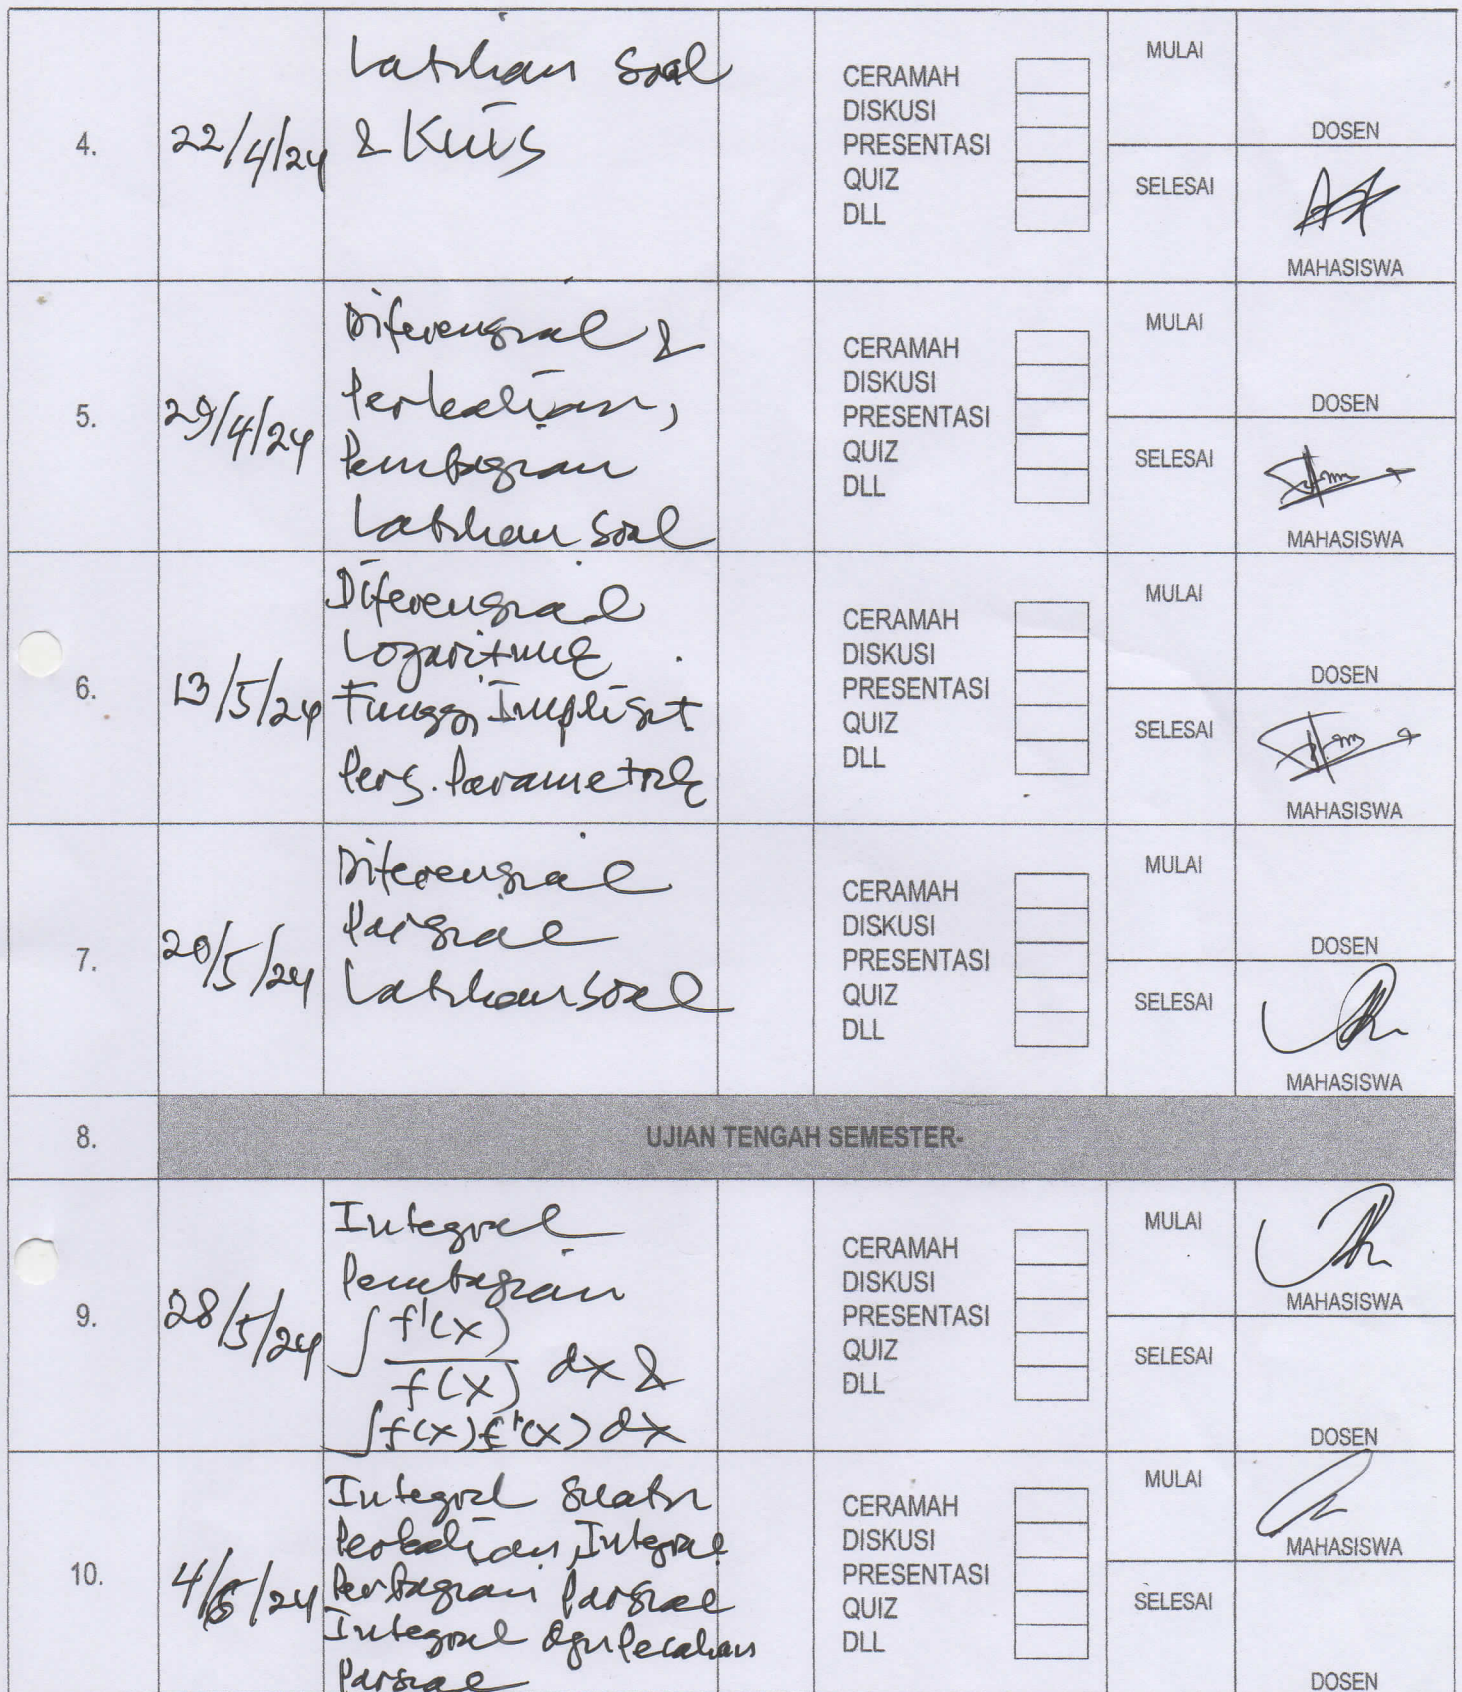 4.
22/4/24
Latihan Soal
& Kuis
CERAMAH
DISKUSI
PRESENTASI
QUIZ
DLL
MULAI
DOSEN
SELESAI
MAHASISWA
5.
29/4/24
Diferensial &
Perkalian,
Pembagian
Latihan Soal
CERAMAH
DISKUSI
PRESENTASI
QUIZ
DLL
MULAI
DOSEN
SELESAI
MAHASISWA
6.
13/5/24
Diferensial
Logaritmik
Fungsi Implisit
Pers. Parametrik
CERAMAH
DISKUSI
PRESENTASI
QUIZ
DLL
MULAI
DOSEN
SELESAI
MAHASISWA
7.
20/5/24
Diferensial
Parsial
Latihan Soal
CERAMAH
DISKUSI
PRESENTASI
QUIZ
DLL
MULAI
DOSEN
SELESAI
MAHASISWA
8.
UJIAN TENGAH SEMESTER-
9.
28/5/24
Integral
Pembagian
∫ f'(x)
f(x) dx &
∫f(x)f'(x) dx
CERAMAH
DISKUSI
PRESENTASI
QUIZ
DLL
MULAI
MAHASISWA
SELESAI
DOSEN
10.
4/6/24
Integral Suatu
Perkalian, Integral
Parsial
Integral dgn Pecahan
Parsial
CERAMAH
DISKUSI
PRESENTASI
QUIZ
DLL
MULAI
MAHASISWA
SELESAI
DOSEN